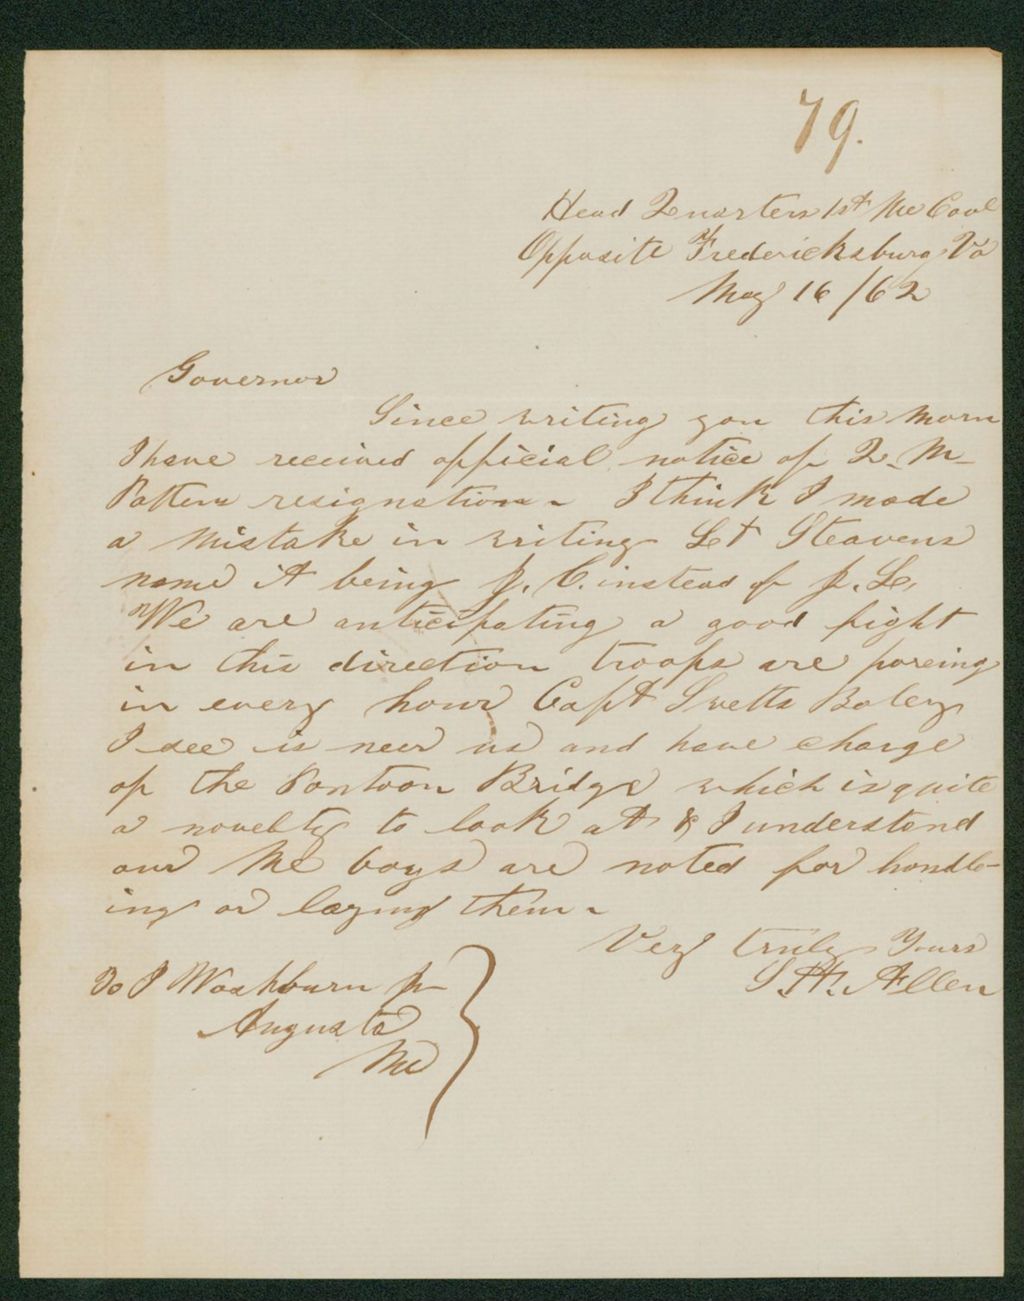 79.
Head Quarters 1st Me Cavl
Opposite Fredericksburg Va
May 16/62
Governor
Since writing you this morn
I have received official notice of Q. M.
Pattens resignation - I think I made
a mistake in writing Lt Steavens
name it being J. C. instead of J. L.
We are anticipating a good fight
in this direction troops are poreing
in every hour Capt Swetts Batery
I see is near us and have charge
of the Pontoon Bridge which is quite
a novelty to look at & I understand
our Me boys are noted for handle-
ing or laying them -
Very truly Yours
S. H. Allen
To I Washburn Jr
Augusta
Me